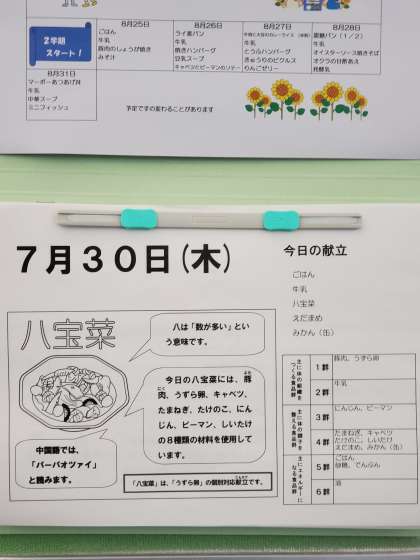 2学期
スタート！
8月25日
ごはん
牛乳
豚肉のしょうが焼き
みそ汁
8月26日
ライ麦パン
牛乳
焼きハンバーグ
豆乳スープ
キャベツとピーマンのソテー
8月27日
牛乳
とうふハンバーグ
きゅうりのピクルス
りんごゼリー
8月28日
黒糖パン（1/2）
牛乳
オイスターソース焼きそば
オクラの甘酢あえ
発酵乳
8月31日
マーボーあつあげ丼
牛乳
中華スープ
ミニフィッシュ
予定ですの変わることがあります
7月30日(木)
今日の献立
ごはん
牛乳
八宝菜
えだまめ
みかん（缶）
八宝菜
八は「数が多い」とい
う意味です。
今日の八宝菜には、豚
肉、うずら卵、キャベツ、
たまねぎ、たけのこ、にん
じん、ピーマン、しいたけ
の８種類の材料を使用して
います。
中国語では、
「パーパオツァイ」
と読みます。
「八宝菜」は、「うずら卵」の個別対応献立です。
主に体の組織をつくる食品群
1群
豚肉、うずら卵
2群
牛乳
主に体の調子を整える食品群
3群
にんじん、ピーマン
4群
たまねぎ、キャベツ
たけのこ、しいたけ
えだまめ、みかん（缶）
主にエネルギーになる食品群
5群
ごはん
砂糖、でんぷん
6群
油